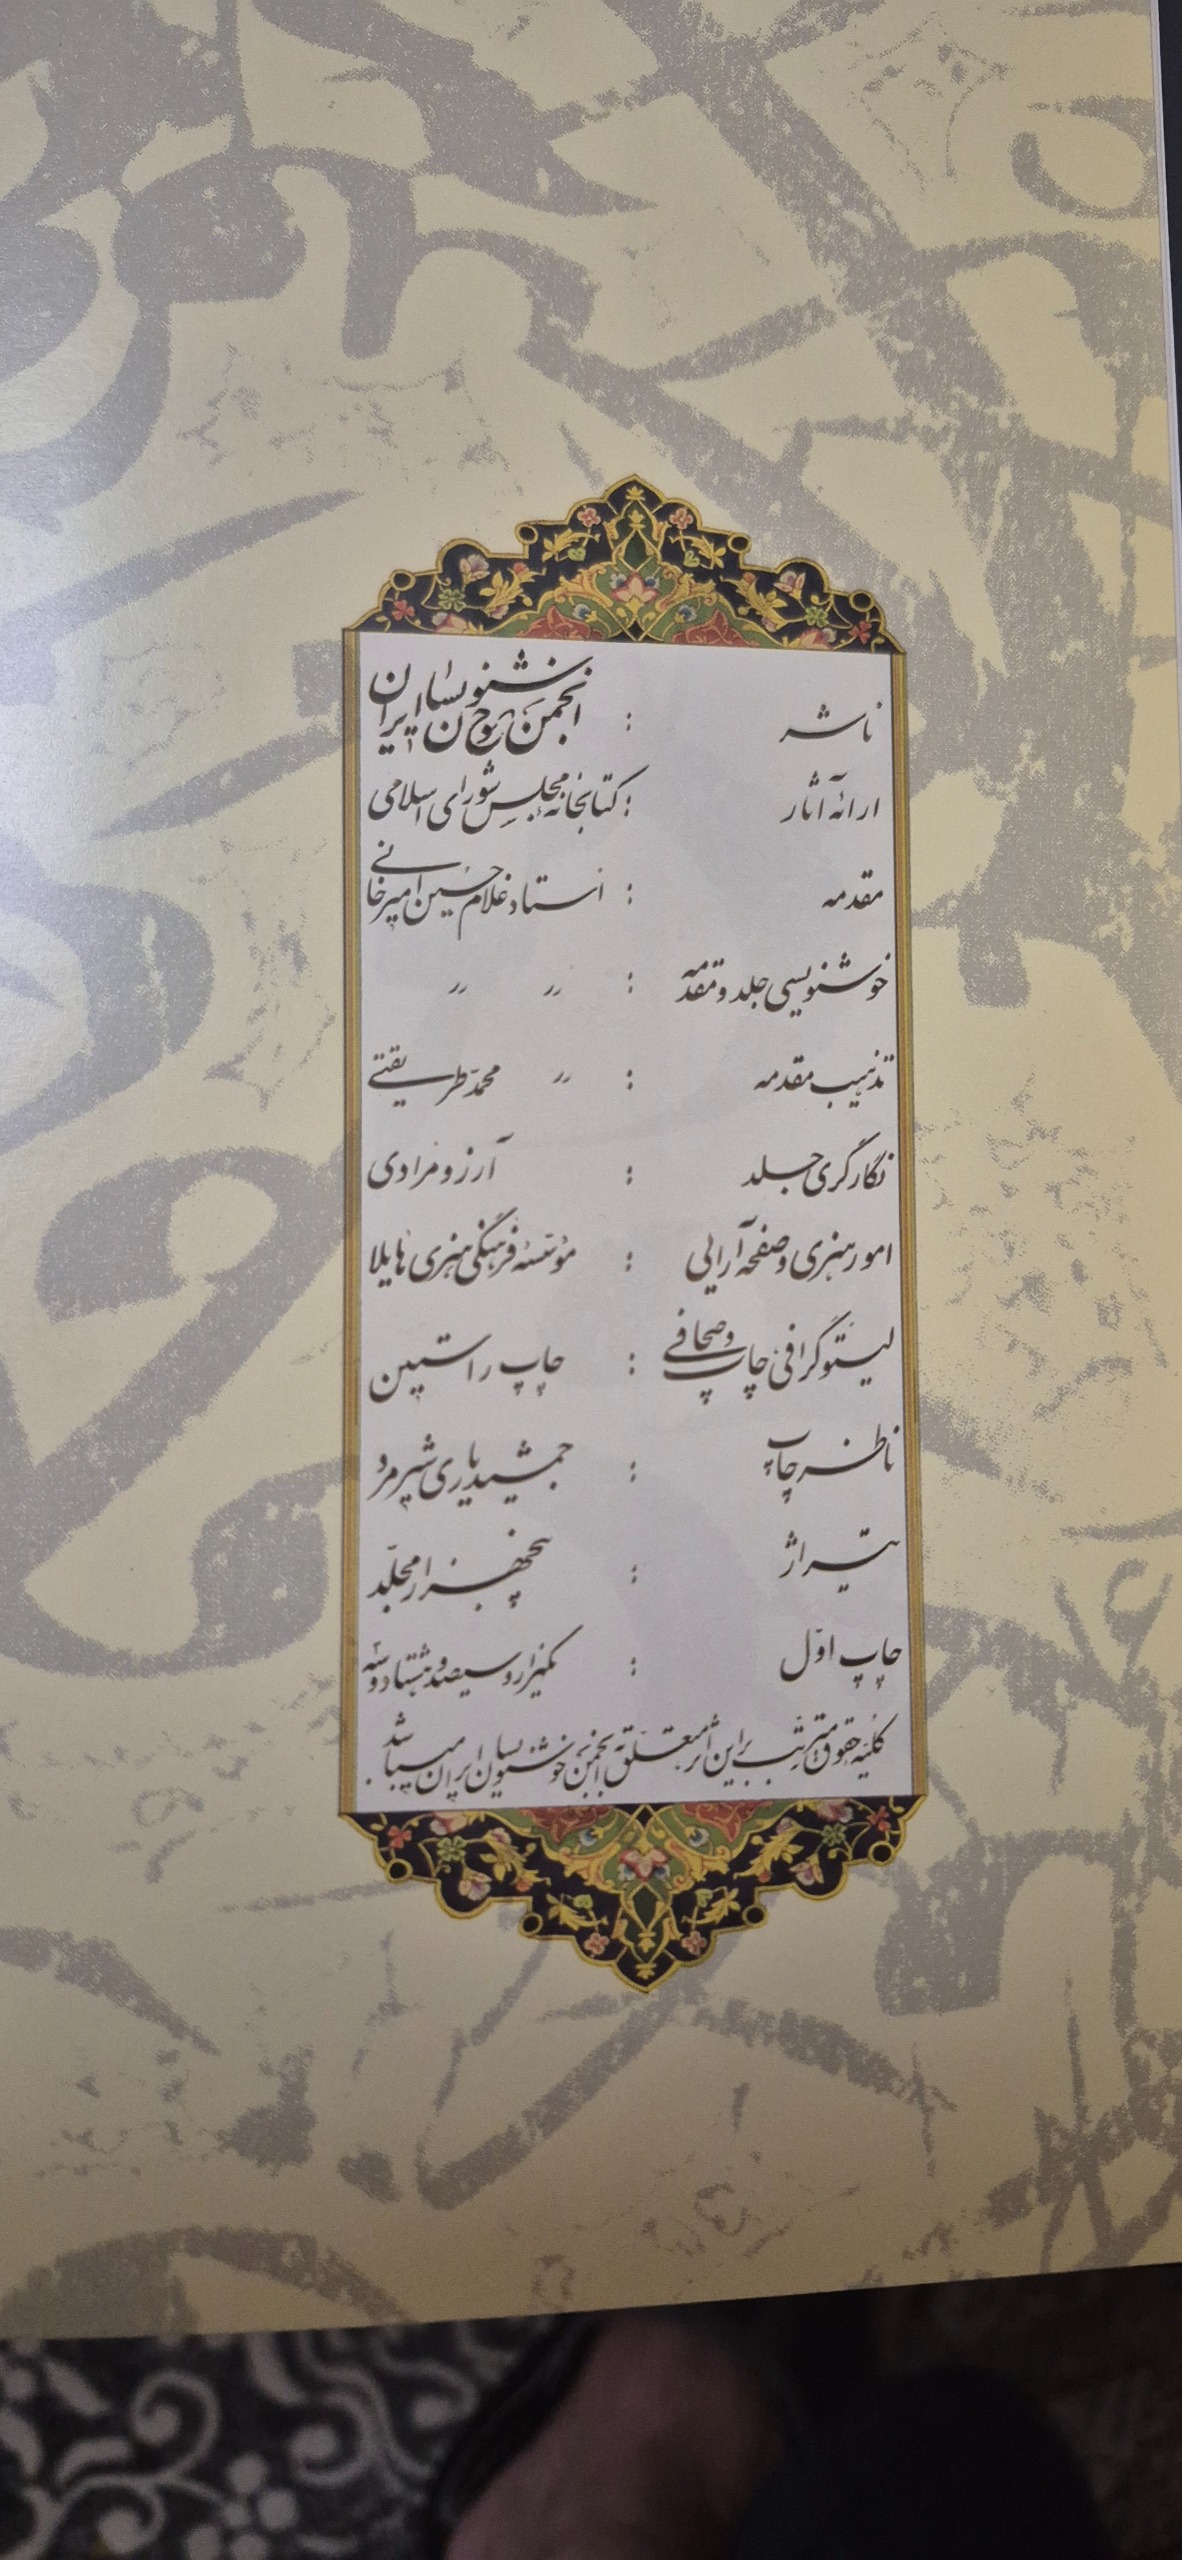 ناشر : انجمن خوشنویسان ایران
ارائه آثار : کتابخانه مجلس شورای اسلامی
مقدمه : استاد غلامحسین امیرخانی
خوشنویسی جلد و مقدمه : 〃 〃
تذهیب مقدمه : 〃 محمد طریقتی
نگارگری جلد : آرزو مرادی
امور هنری و صفحه آرایی : مؤسسه فرهنگی هنری هایلا
لیتوگرافی چاپ و صحافی : چاپ راستین
ناظر چاپ : جمشید یاری شیرمرد
تیراژ : پنجهزار مجلد
چاپ اوّل : یکهزار و سیصد و هشتاد و سه
کلیه حقوق مترتب بر این اثر متعلق به انجمن خوشنویسان ایران میباشد.